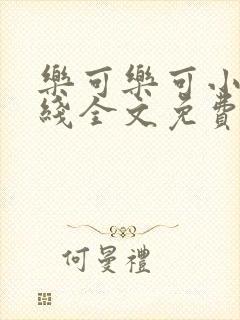 樂可樂可小
綫全文免費
何曼禮